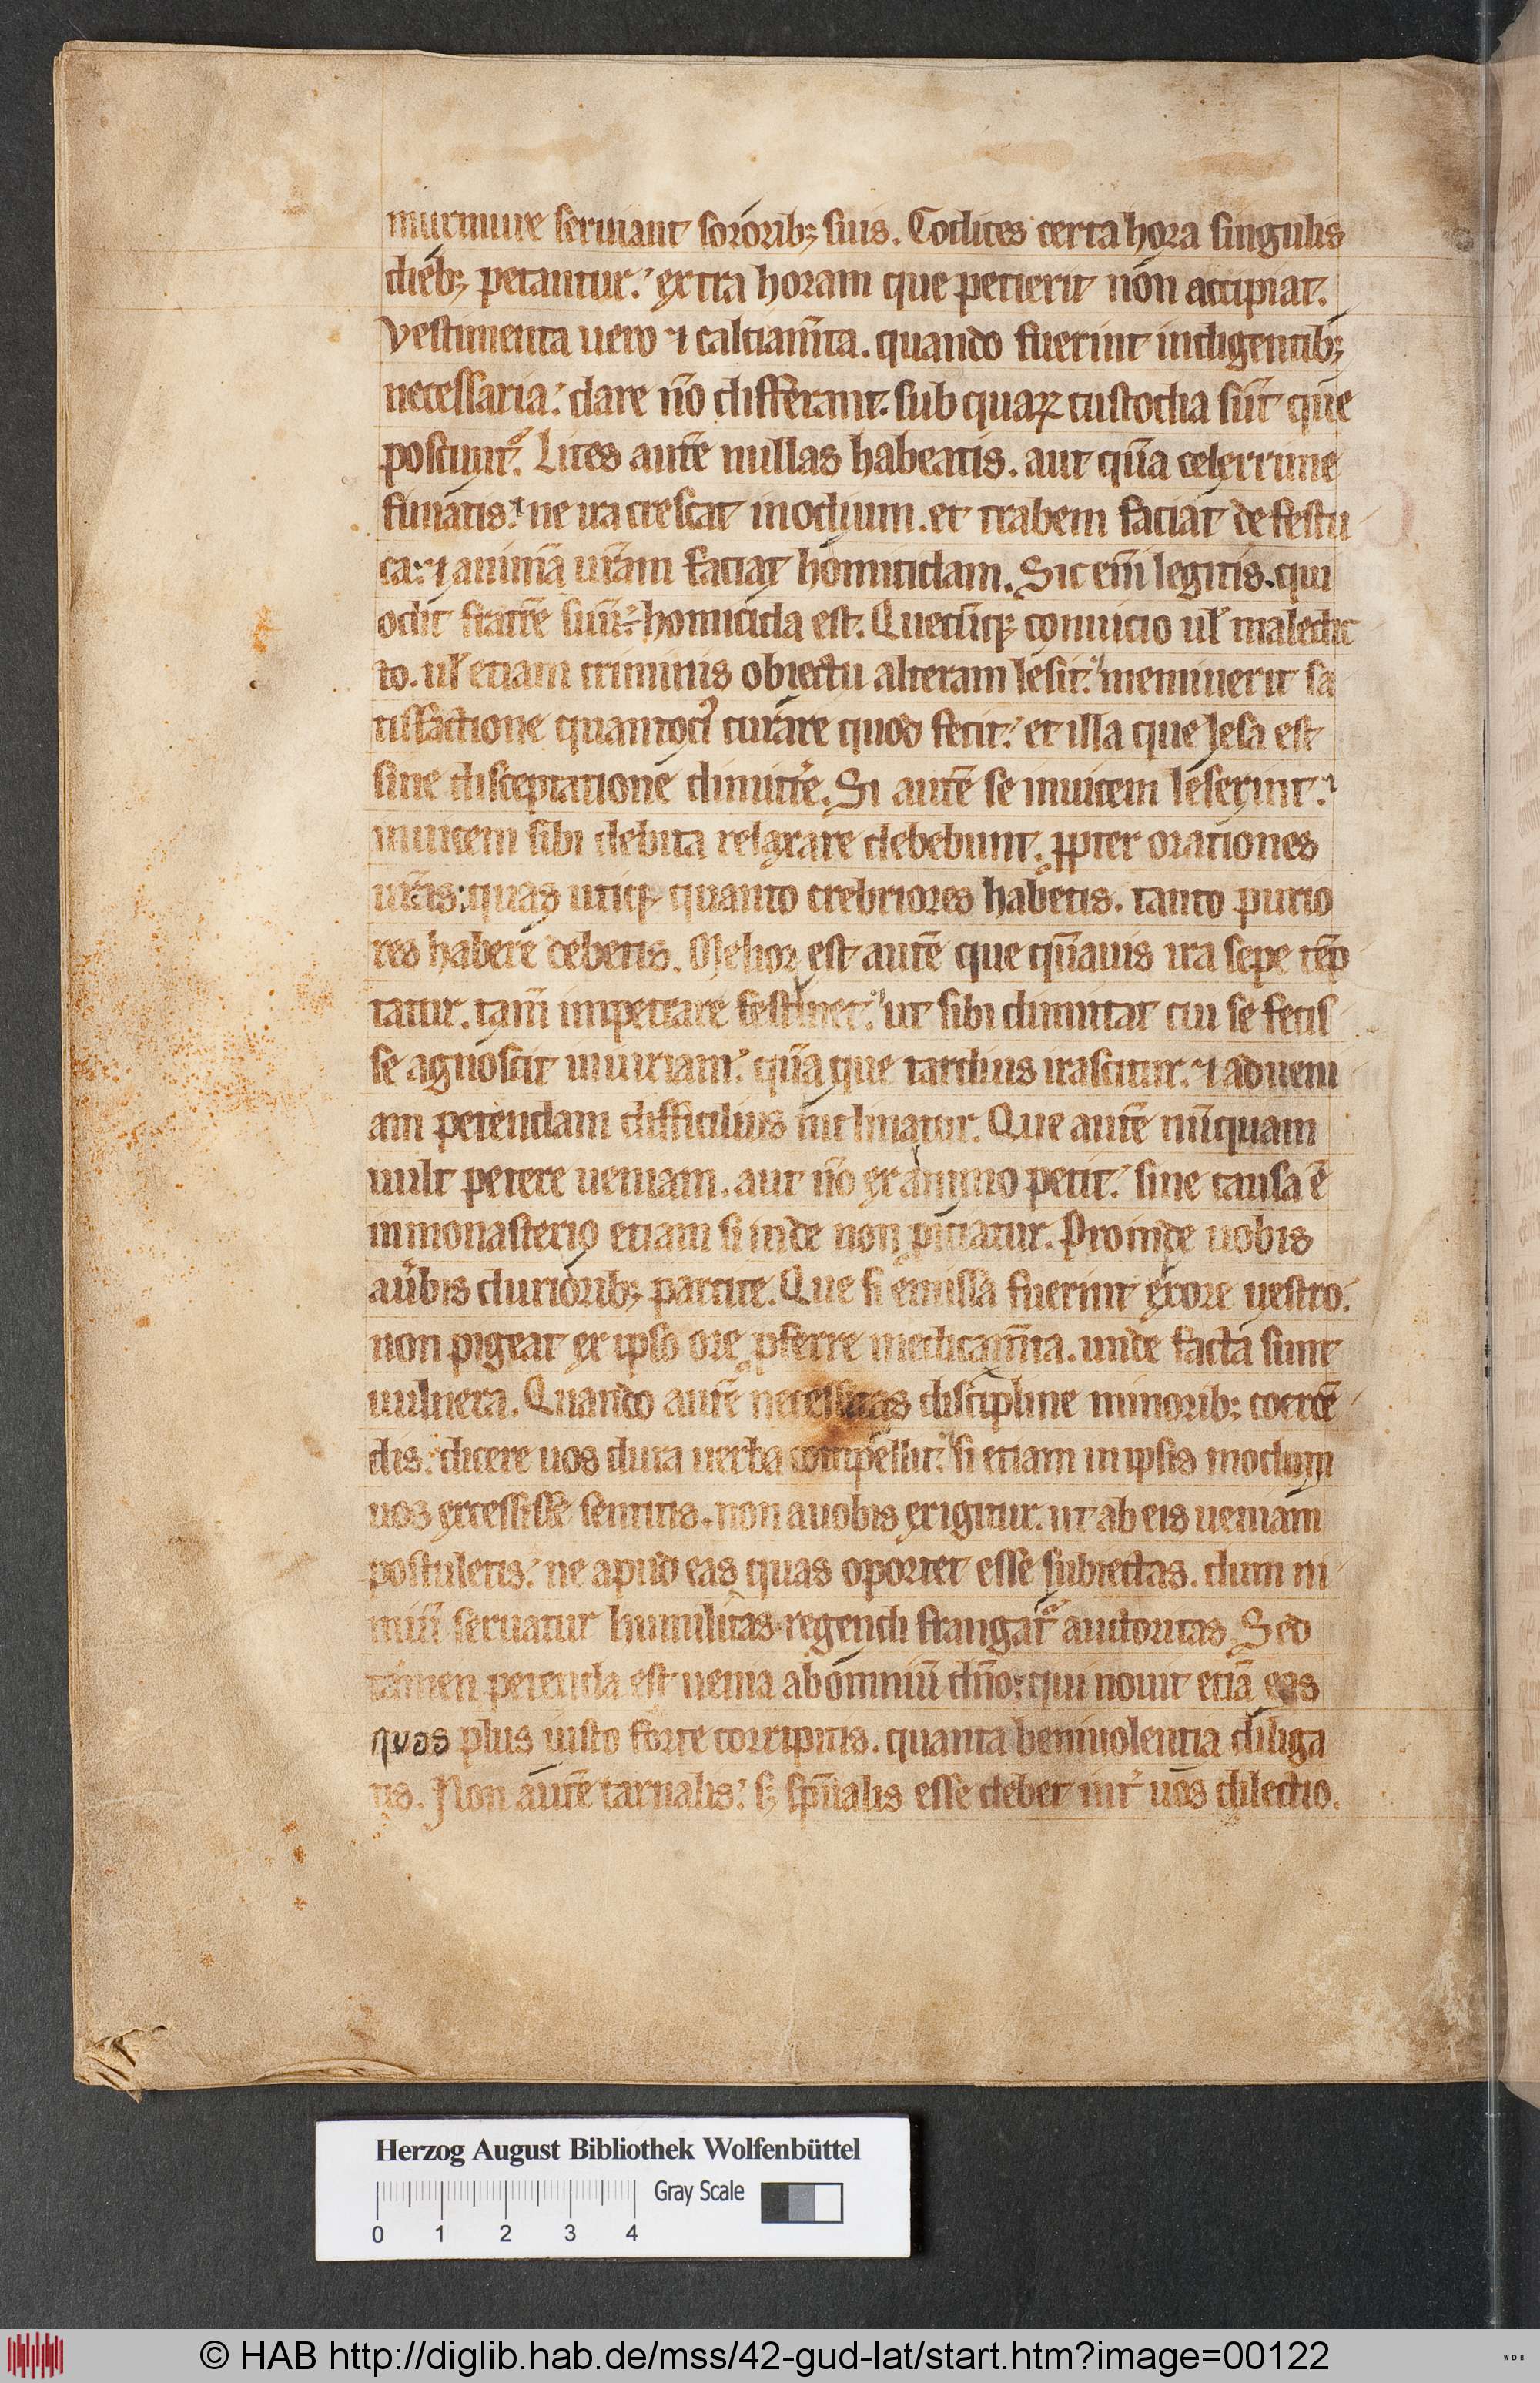 murmure seruiant sororib; suis. Codices certa hora singulis
dieb; petantur. extra horam que petierit non accipiat.
Vestimenta uero ⁊ calciam̄ta. quando fuerint indigentib;
necessaria. dare n̄o differant. sub quaꝝ custodia sūt que
poscunt̃. Lites autē nullas habeatis. aut qūa celerrime
finiatis. ne ira crescat in odium. et trabem faciat de festu
ca: ⁊ animā ur̄am faciat homicidam. Sic em̄ legitis. qui
odit fratrē suū. homicida est. Quecūqꝫ conuicio ul̄ maledic
to. ul̄ etiam criminis obiectu alteram lesit. meminerit sa
tisfactione quantociꝰ curare quod fecit. et illa que lesa est
sine disceptatione dimittẽ. Si autē se inuicem leserint.
inuicem sibi debita relaxare debebunt. ꝓpter orationes
ur̄as. quas utiqꝫ quanto crebriores habetis. tanto purio
res habere debetis. Melior est autē que qūauis ira sepe tēp
tatur. tam̄ impetrare festinet. ut sibi dimittat cui se fecis
se agnoscit iniuriam. qūa que tardius irascitur. ⁊ ad ueni
am petendam difficilius inclinatur. Que autē nūquam
uult petere ueniam. aut n̄o ex animo petit. sine causa ē
in monasterio etiam si inde non ꝓiciatur. Proinde uobis
a ūbis duriorib; parcite. Que si emissa fuerint ex ore uestro.
non pigeat ex ipso ore ꝓferre medicam̄ta. unde facta sunt
uulnera. Quando autē necessitas discipline minorib; cocrcē
dis. dicere uos dura uerba compellit. si etiam in ipsis modum
uos excessisse sentitis. non a uobis exigitur. ut ab eis ueniam
postuletis. ne apud eas quas oportet esse subiectas. dum ni
miū seruatur humilitas regendi frangat̃ auctoritas. Sed
tamen petenda est uenia ab omniū dn̄o. qui nouit etiā eas
quas plus iusto forte corripitis. quanta beniuolentia diliga
tis. Non autē carnalis. s; sp̄ualis esse debet int̃ uos dilectio.
Herzog August Bibliothek Wolfenbüttel
Gray Scale
0 1 2 3 4
© HAB http://diglib.hab.de/mss/42-gud-lat/start.htm?image=00122
WDB